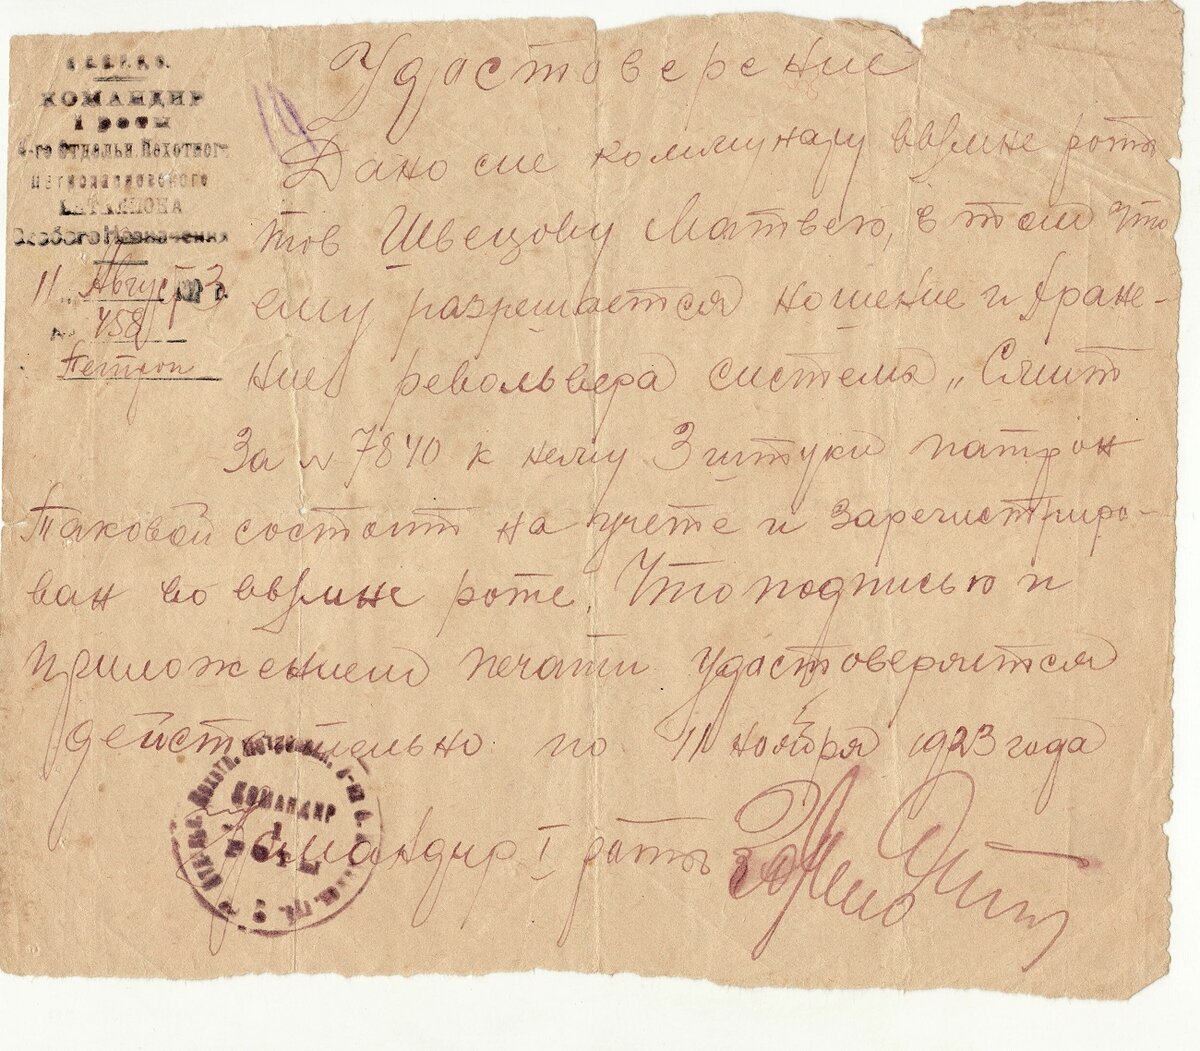 КОМАНДИР
1 роты
4-го Отдельн. Пехотного
БАТАЛИОНА
Особого Назначения
11 Август 3 г.
458
Удостоверение
Дано сие коммунару вверенной роты
тов Швецову Матвею, в том что
ему разрешается ношение и хране-
ние револьвера система „Смит
За № 7840 к нему 3 штуки патрон
Таковой состоит на учете и зарегистриро-
ван во вверенне роте. Что подписью и
приложением печати удостоверяется
действительно по 11 ноября 1923 года
Командир I роты
КОМАНДИР
1